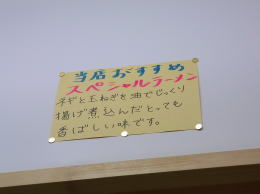 当店おすすめ
スペシャルラーメン
ネギと玉ねぎを油でじっくり
揚げ煮込んだとっても
香ばしい味です。